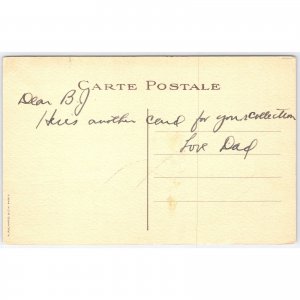 CARTE POSTALE
Dear B J
Heres another card for your collection
Love Dad